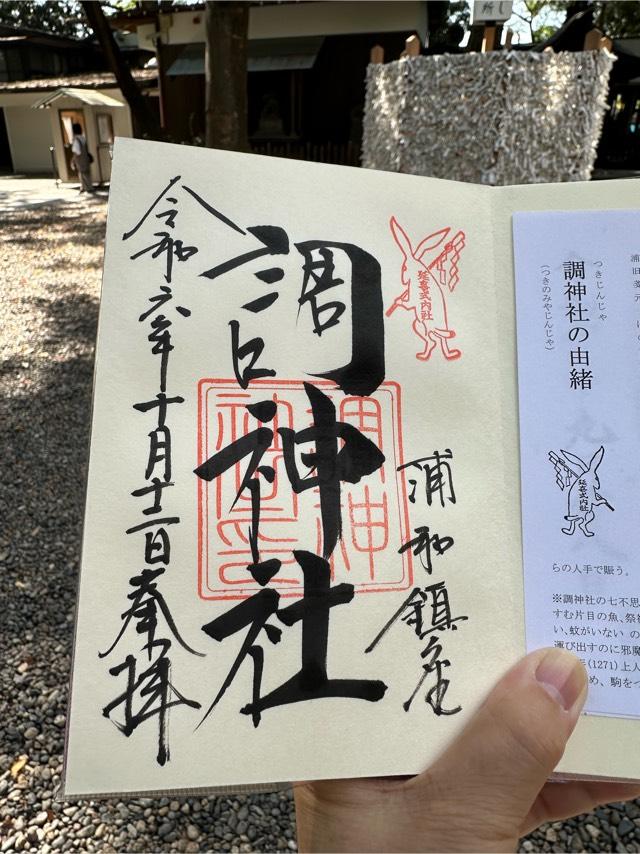 所
し
延喜式内社
浦和鎮座
調神社
令和六年十月十二日奉拝
つきじんじゃ
調神社の由緒
(つきのみやじんじゃ)
延喜式内社
らの人手で賑う。
※調神社の七不思
すむ片目の魚、祭
い、蚊がいない の
運び出すのに邪魔
(1271)上人
め、駒をつ